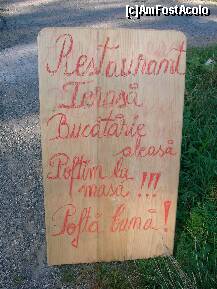 [c]AmFostAcolo
Restaurant
Terasă
Bucătărie
aleasă
Poftim la
masă !!!
Poftă bună !